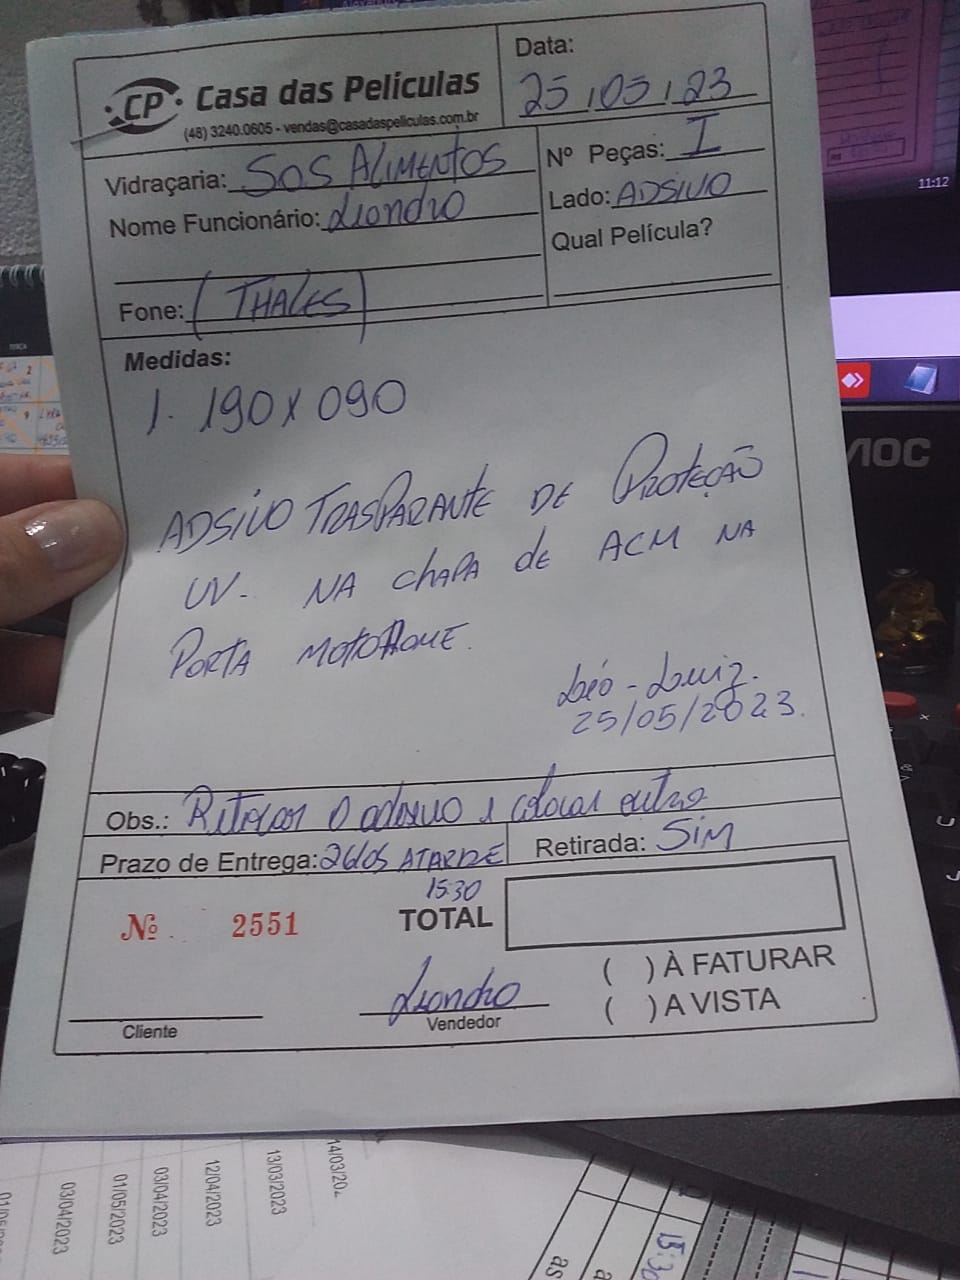 CP Casa das Películas
(48) 3240.0605 - vendas@casadaspeliculas.com.br
Data:
25/05/23
Vidraçaria: SOS ALIMENTOS
Nº Peças: I
Nome Funcionário: Liondro
Lado: ADSIVO
Qual Película?
Fone: (THALES)
Medidas:
1. 190 x 090
ADSIVO TRASPARANTE DE PROTEÇÃO
UV. NA CHAPA de ACM NA
PORTA MOTORHOME.
Léo - Luiz.
25/05/2023.
Obs.: Retirar o adsivo e colocar outro
Prazo de Entrega: 26/05 ATARDE
Retirada: SIM
15:30
Nº 2551
TOTAL
( ) À FATURAR
( ) A VISTA
Liondro
Cliente
Vendedor
11:12
AOC
01/05/2023
03/04/2023
03/04/2023
12/04/2023
13/03/2023
14/03/202
15:30
as